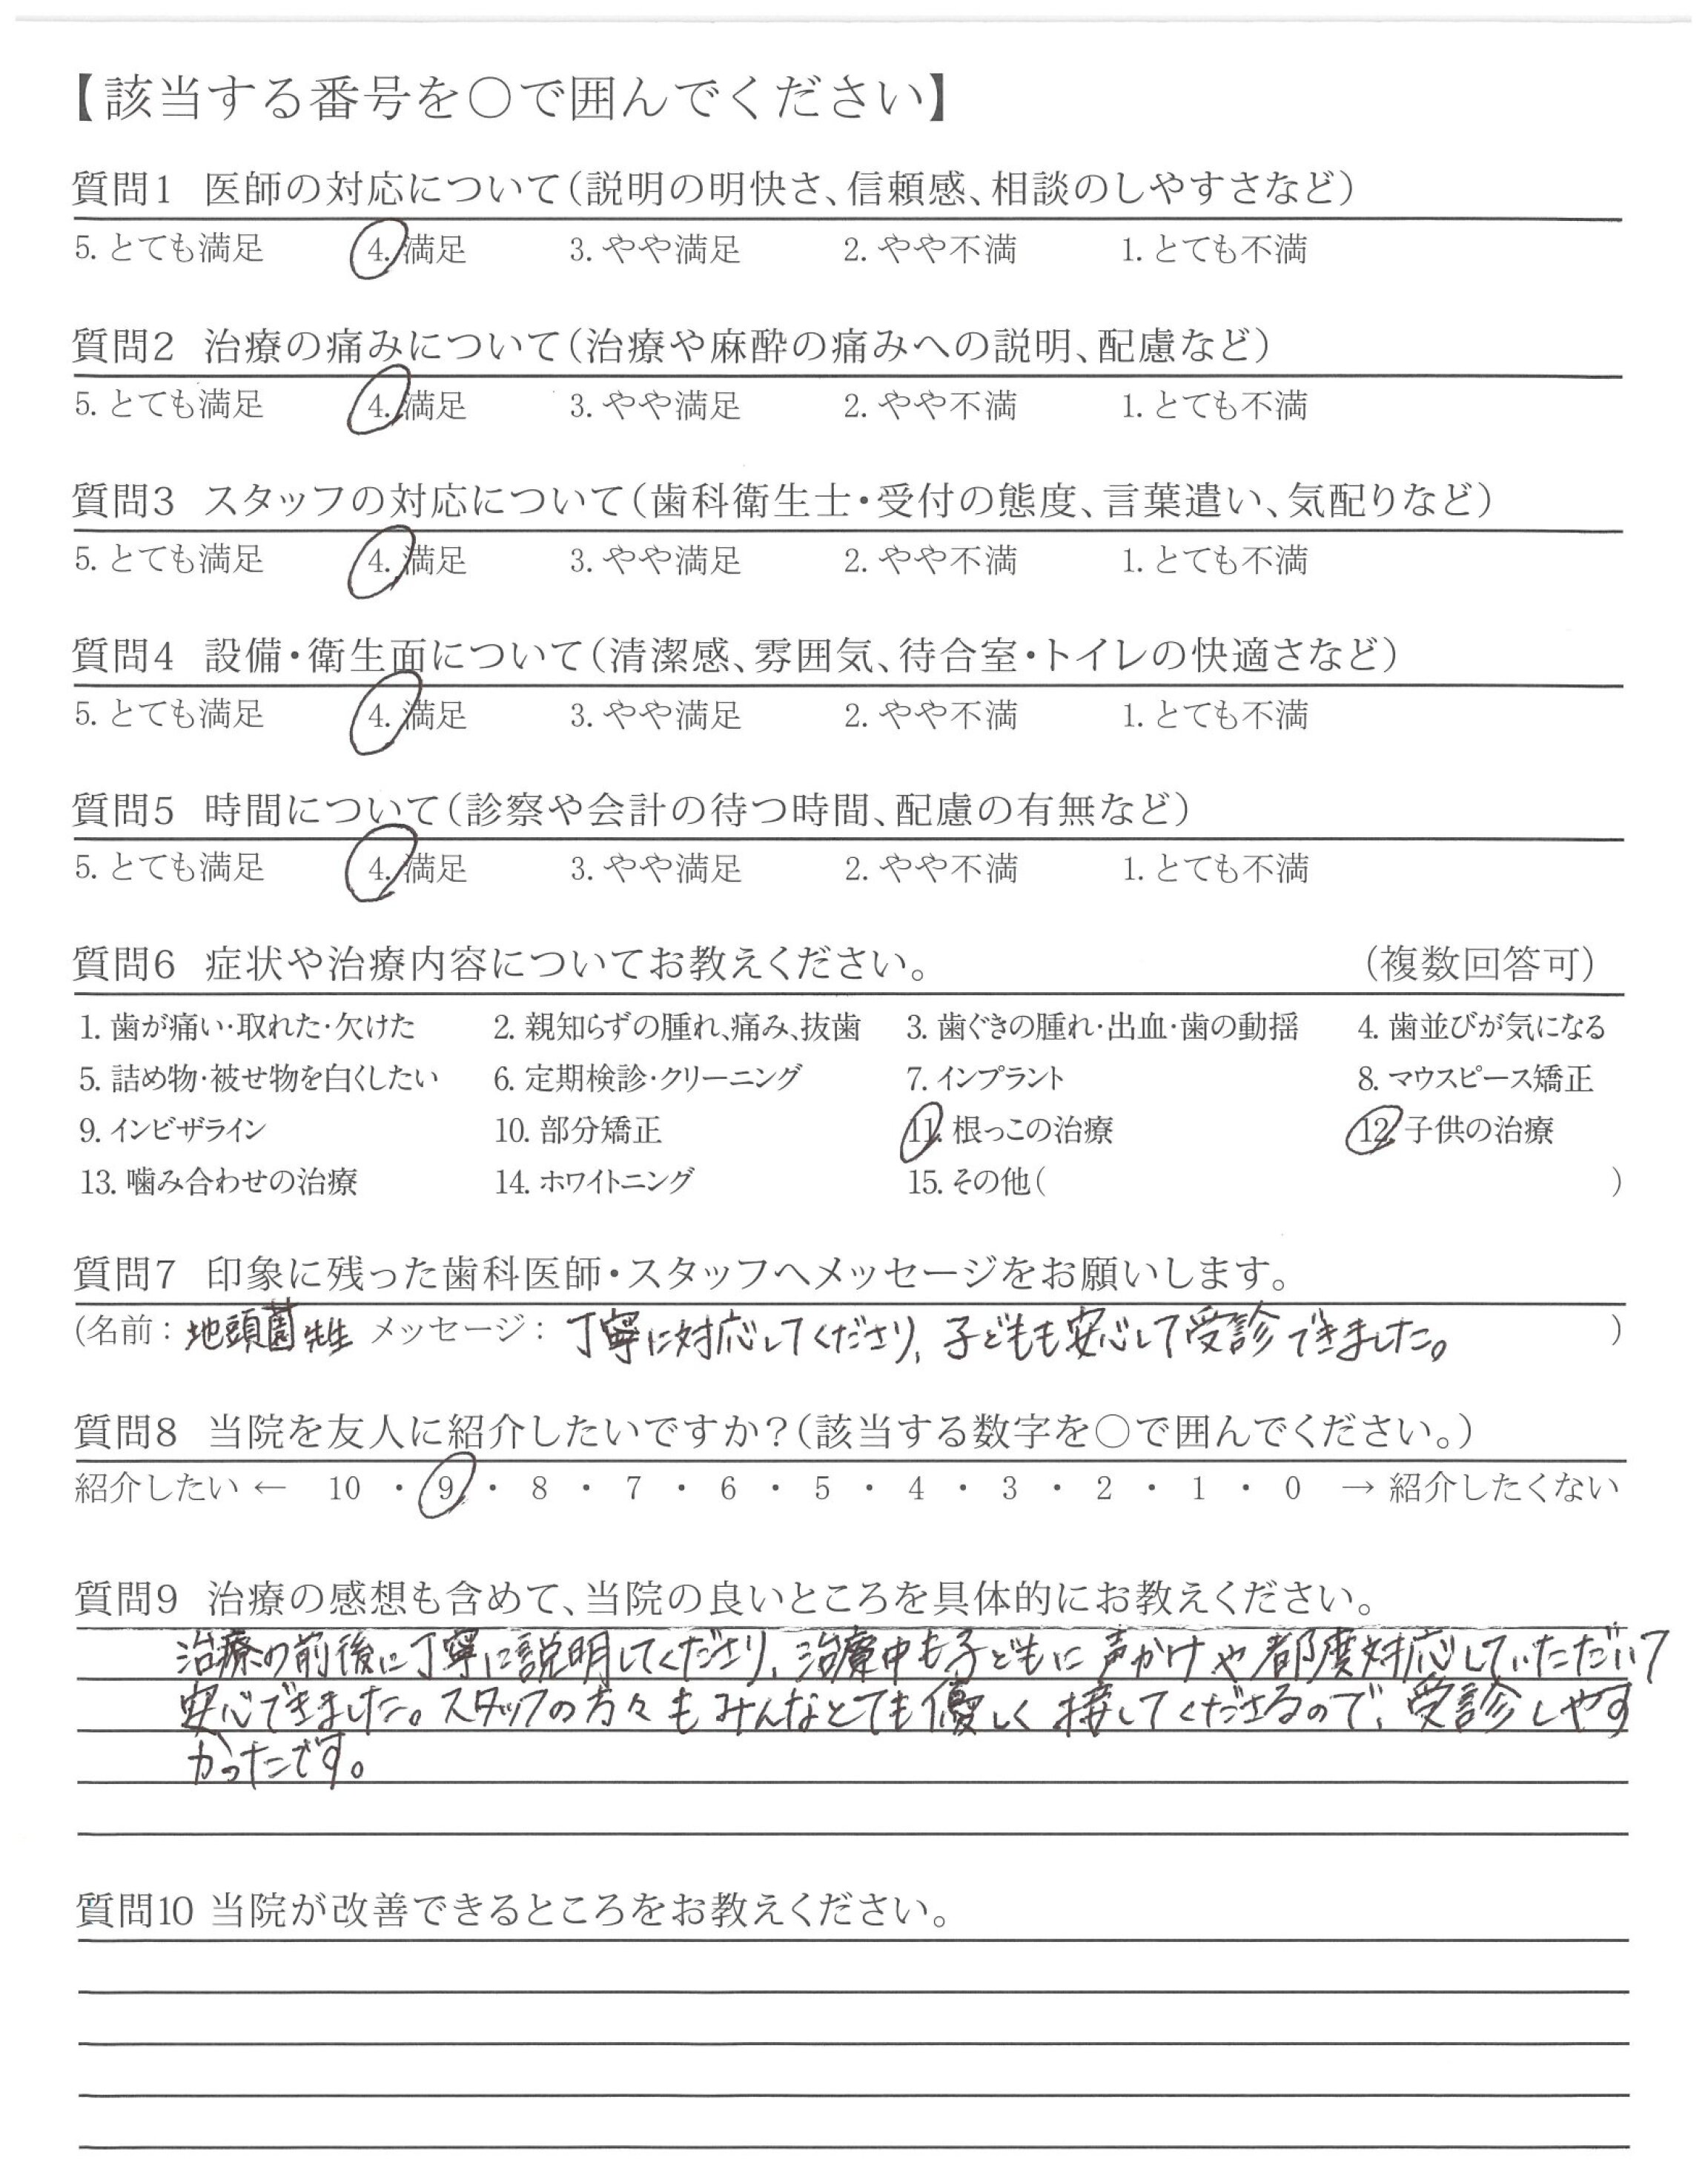 【該当する番号を〇で囲んでください】
質問1 医師の対応について(説明の明快さ、信頼感、相談のしやすさなど)
5. とても満足 4. 満足 3. やや満足 2. やや不満 1. とても不満
質問2 治療の痛みについて(治療や麻酔の痛みへの説明、配慮など)
5. とても満足 4. 満足 3. やや満足 2. やや不満 1. とても不満
質問3 スタッフの対応について(歯科衛生士・受付の態度、言葉遣い、気配りなど)
5. とても満足 4. 満足 3. やや満足 2. やや不満 1. とても不満
質問4 設備・衛生面について(清潔感、雰囲気、待合室・トイレの快適さなど)
5. とても満足 4. 満足 3. やや満足 2. やや不満 1. とても不満
質問5 時間について(診察や会計の待つ時間、配慮の有無など)
5. とても満足 4. 満足 3. やや満足 2. やや不満 1. とても不満
質問6 症状や治療内容についてお教えください。 (複数回答可)
1. 歯が痛い・取れた・欠けた 2. 親知らずの腫れ、痛み、抜歯 3. 歯ぐきの腫れ・出血・歯の動揺 4. 歯並びが気になる
5. 詰め物・被せ物を白くしたい 6. 定期検診・クリーニング 7. インプラント 8. マウスピース矯正
9. インビザライン 10. 部分矯正 11. 根っこの治療 12. 子供の治療
13. 噛み合わせの治療 14. ホワイトニング 15. その他( )
質問7 印象に残った歯科医師・スタッフへメッセージをお願いします。
(名前： 地頭薗先生 メッセージ： 丁寧に対応してくださり、子どもも安心して受診できました。 )
質問8 当院を友人に紹介したいですか？(該当する数字を〇で囲んでください。)
紹介したい ← 10 ・ 9 ・ 8 ・ 7 ・ 6 ・ 5 ・ 4 ・ 3 ・ 2 ・ 1 ・ 0 → 紹介したくない
質問9 治療の感想も含めて、当院の良いところを具体的にお教えください。
治療の前後に丁寧に説明してくださり、治療中も子どもに声かけや都度対応していただいて
安心できました。スタッフの方々もみんなとても優しく接してくださるので、受診しやす
かったです。
質問10 当院が改善できるところをお教えください。